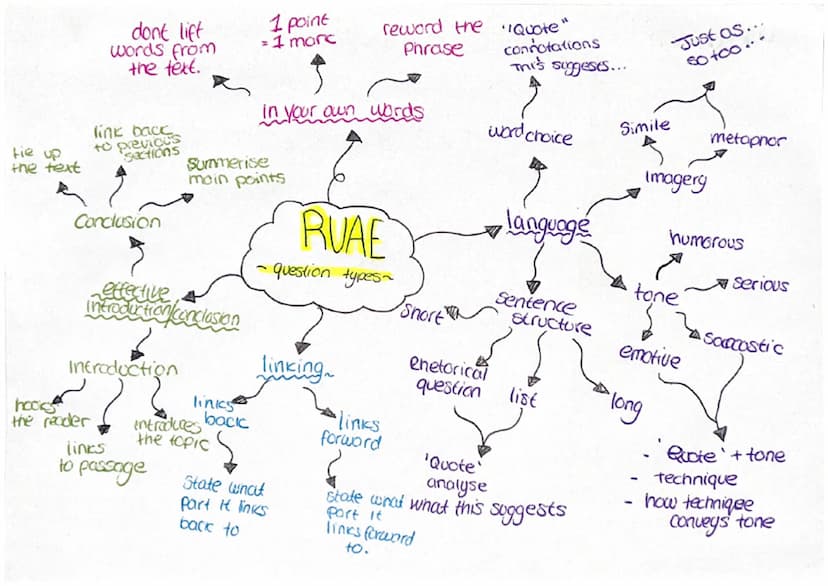 RUAE
~question types~
in your own words
dont lift
words from
the text.
1 point
= 1 mark
reword the
Phrase
language
word choice
"Quote"
connotations
This suggests...
Imagery
Simile
metaphor
Just as...
so too...
tone
humorous
serious
sarcastic
emotive
- 'Quote' + tone
- technique
- how techniqee
conveys tone
sentence
structure
short
rhetorical
question
list
long
'Quote'
analyse
what this suggests
linking
links
back
State what
part it links
back to
links
forward
state what
part it
links forward
to.
effective
introduction/conclusion
Conclusion
tie up
the text
link back
to previous
sections
Summerise
main points
Introduction
hooks
the reader
links
to passage
introduces
the topic